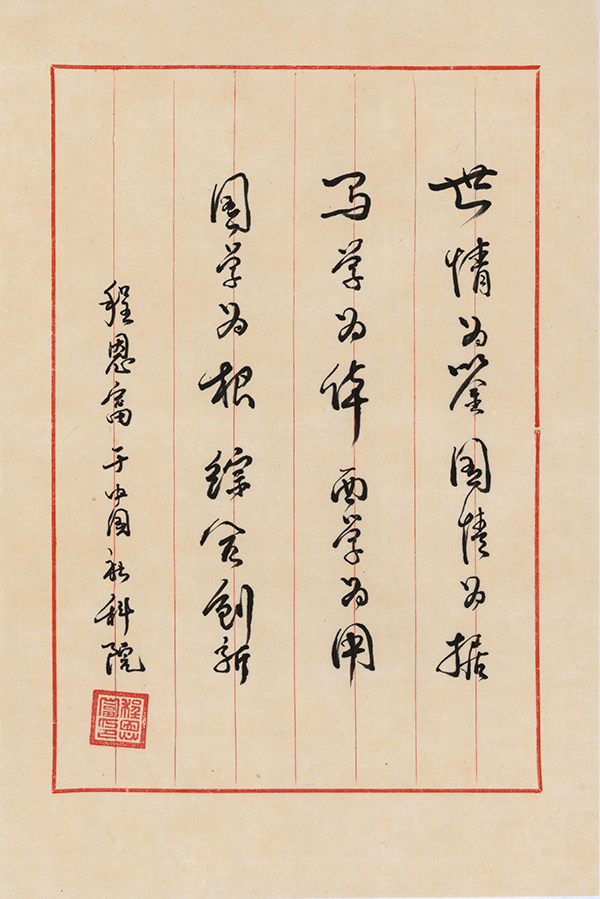 世情为鉴国情为据
马学为体西学为用
国学为根综合创新
程恩富于中国社科院
程恩富印